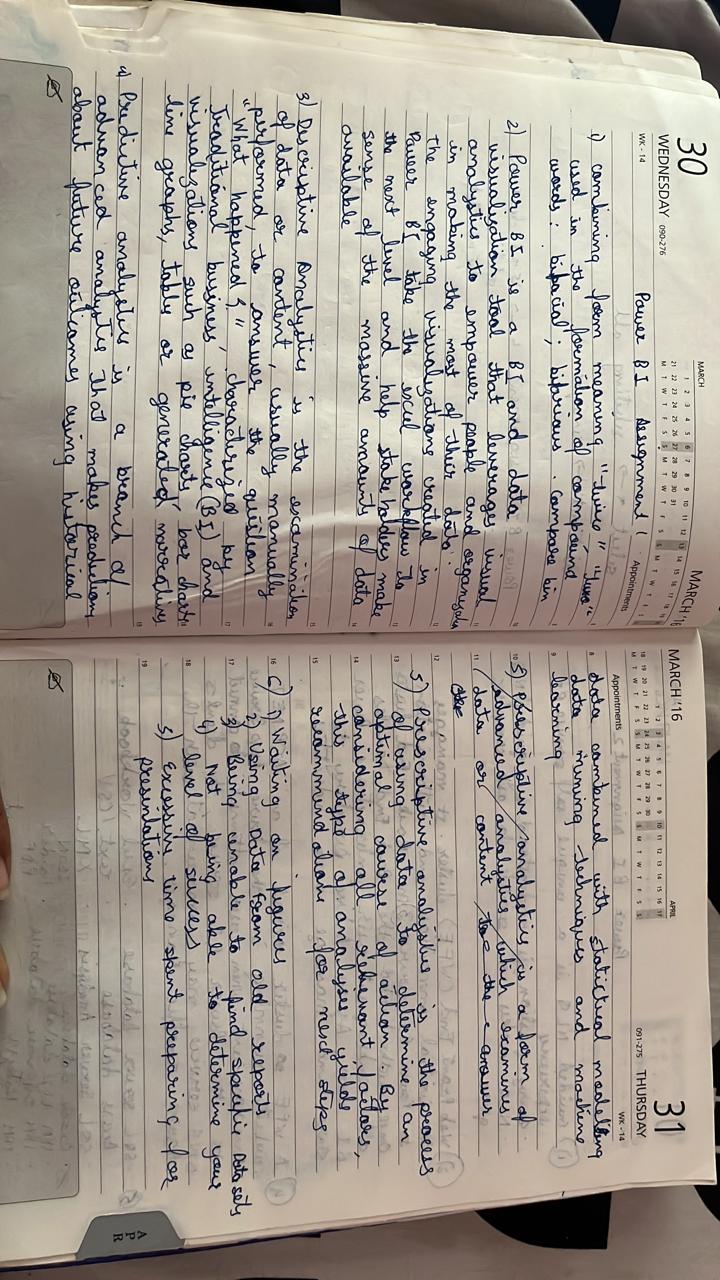 30
WEDNESDAY 090-276
WK - 14
MARCH
MARCH '16
Appointments
Power BI Assignment
1) combining form meaning "twice", "two"
used in the formation of compound
words: bifacial; bifarious. Compare bin
2) Power BI is a BI and data
visualisation tool that leverages visual
analytics to empower people and organisation
in making the most of their data.
The engaging visualizations created in
Power BI take the excel workflow to
the next level and help stakeholders make
sense of the massive amounts of data
available
3) Descriptive Analytics is the examination
of data or content, usually manually
performed, to answer the question
"What happened?," characterized by
Traditional business intelligence (BI) and
visualizations such as pie charts, bar charts
line graphs, table or generated narratives
4) Predictive analytics is a branch of
advanced analytics that makes prediction
about future outcomes using historical
MARCH '16
APRIL
091-275 THURSDAY
31
WK - 14
Appointments
data combined with statictual modelling
data mining techniques and machine
learning
5) prescriptive analystic is a form of
advanced analystics which examines
data or content to the answer
5) Prescriptive analystic is the process
of using data to determine an
optimal course of action. By
considering all relevant factors,
this type of analysis yields
recommendation for next steps
6) 1) Waiting on figures
2) Using Data from old reports
3) Being unable to find specific Data sets
4) Not being able to determine your
level of success
5) Excessive time spent preparing for
presentations
APR